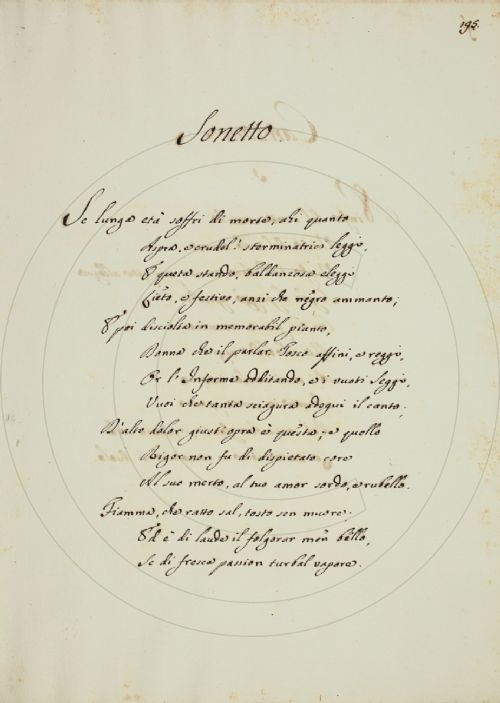 195.
Sonetto
Se lunga età soffrì di morte, ahi quanto
Aspra, e crudel! sterminatrice legge,
E questa stando, baldanzosa elegge
Lieto, e festivo, anzi che negro ammanto;
E poi disciolta in memorabil pianto,
Donna che il parlar Tosco affini, e regge,
Or l'Informe additando, e i vuoti seggi,
Vuoi che tanta sciagura adegui il canto;
D'alto dolor giust'opra è questa; e quello
Rigor non fu di dispietato core
Al suo merto, al tuo amor sordo, e rubello.
Fiamma, che ratto sal, tosto sen muore;
Ed è di laude il folgorar men bello,
Se di fresca passion turbal vapore.